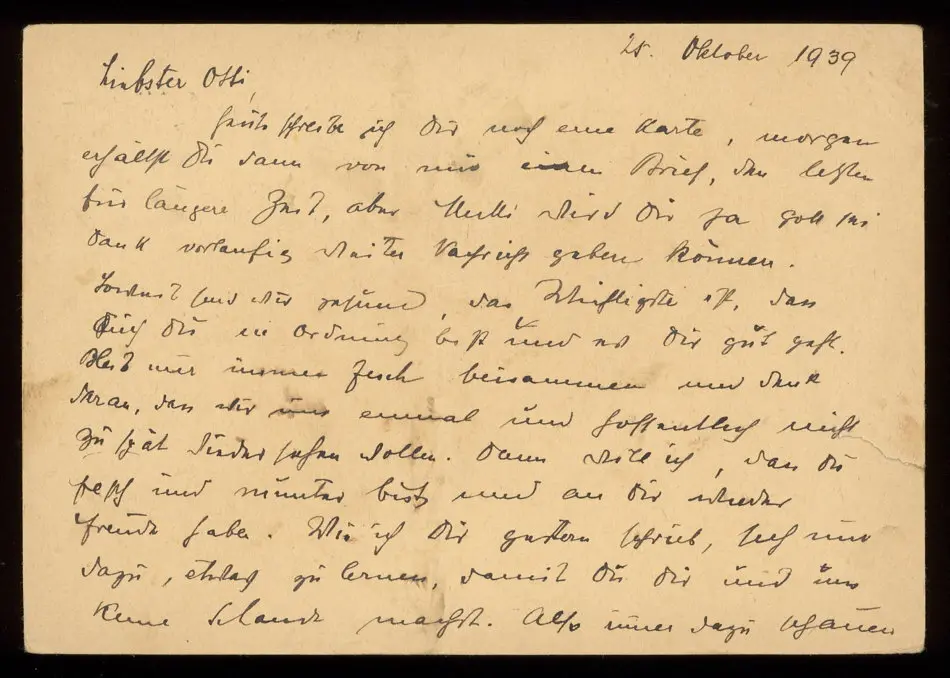 25. Oktober 1939
Liebster Otti,
heute schreibe ich Dir noch eine Karte, morgen
erhällst Du dann von mir einen Brief, den letzten
für längere Zeit, aber Mutti wird Dir ja gott sei
dank vorlaufig weiter Nachricht geben können.
Soweit sind wir gesund, das Wichtigste ist, dass
Auch Du in Ordnung bist und es Dir gut geht.
Bleib mir immer fesch beisammen und denk
daran, dass wir uns einmal und hoffentlich nicht
zu spät wieder sehen wollen. Dann will ich, dass Du
fesch und munter bist und an Dir wieder
Freude haben. Wie ich Dir gestern schrieb, seh nur
dazu, etwas zu lernen, damit Du Dir und uns
keine Schande machst. Also immer dazu schauen